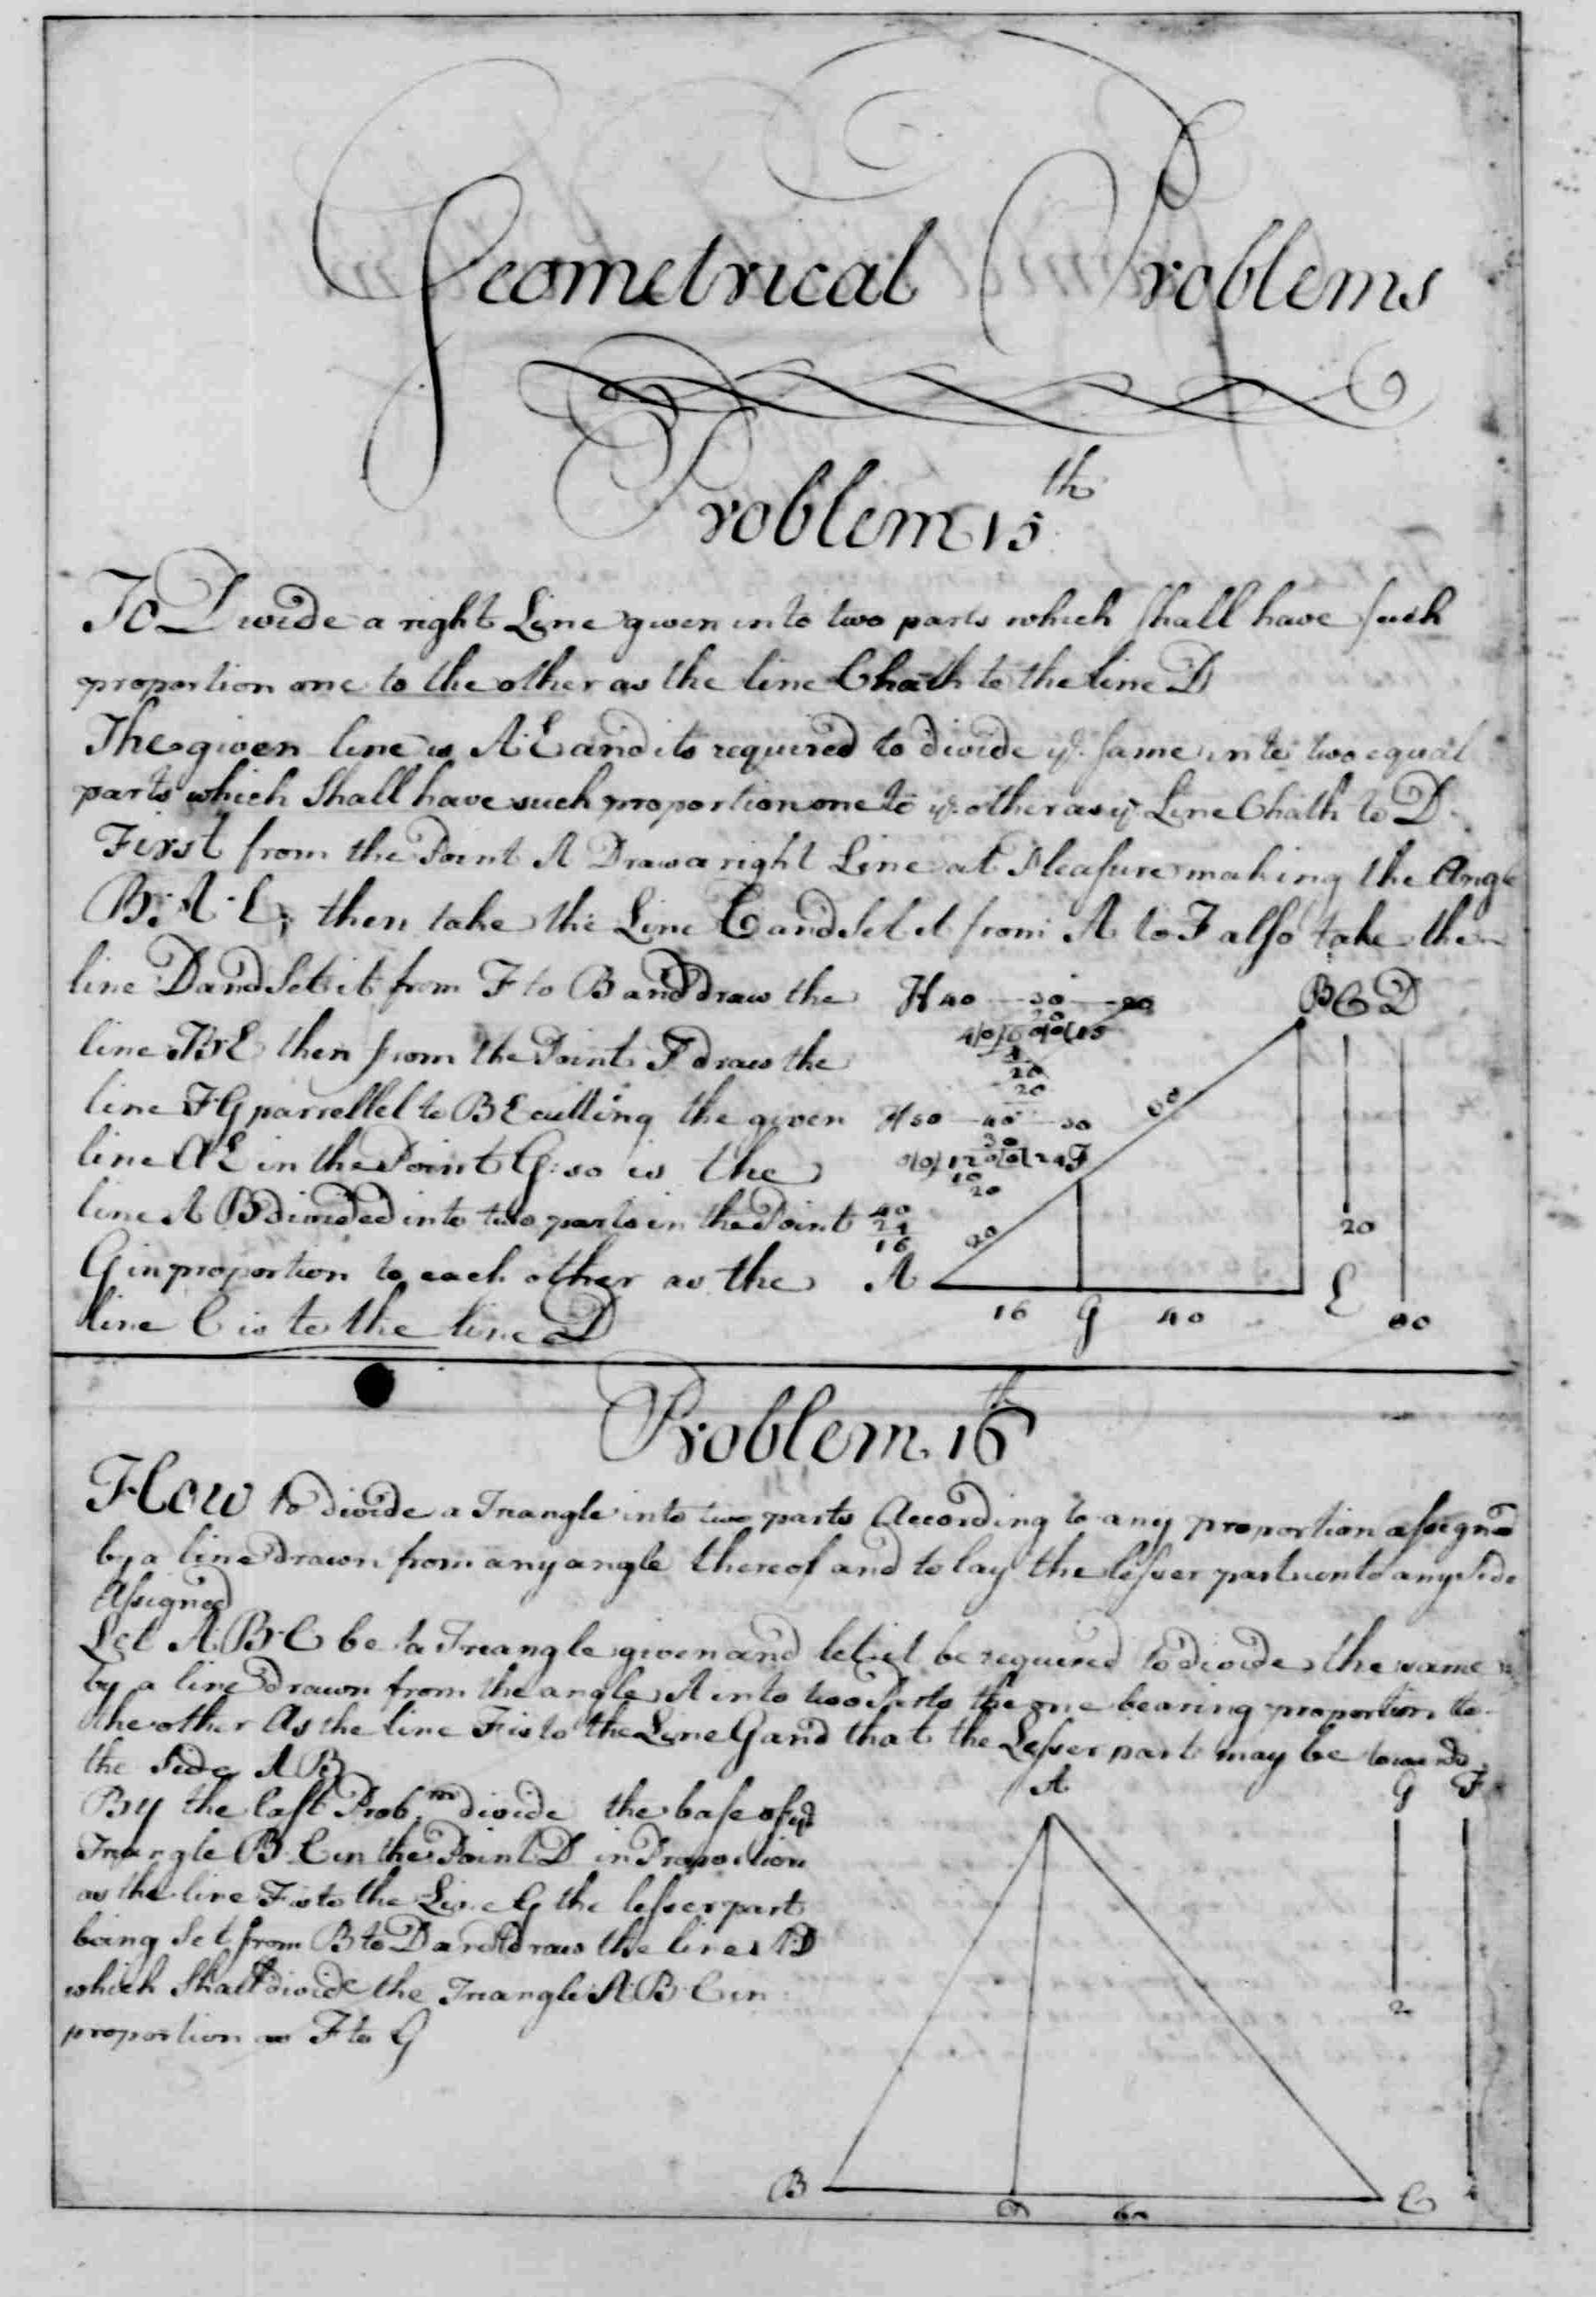 Geometrical Problems
Problem 15th
To Divide a right Line given into two parts which shall have such
proportion one to the other as the line C hath to the line D
The given line is A E and its required to divide ye same into two equal
parts which shall have such proportion one to ye other as ye Line C hath to D
First from the Point A Draw a right Line at Pleasure making the Angle
B A E, then take the Line C and Set it from A to F also take the
line D and Set it from F to B and draw the
line B E then from the Point F draw the
line F G parrellel to B E cutting the given
line A E in the Point G: so is the
line A B divided into two parts in the Point
G in proportion to each other as the
line C is to the line D
B C D
F
40
24
16
20
A
16 G 40
E
20
Problem 16th
How to divide a Triangle into two parts According to any proportion assigned
by a line drawn from any angle thereof and to lay the lesser part unto any Side
Assigned
Let A B C be a Treangle given and let it be required to divide the same
by a line drawn from the angle A into two Parts the one bearing proportion to
the other As the line F is to the Line G and that the Lesser part may be towards
the Side A B
By the last Probm divide the base of ye
Triangle B C in the Point D in Proportion
as the line F is to the Line G the lesser part
being Set from B to D and draw the line A D
which Shall divide the Triangle A B C in
proportion as F to G
A
G F
2
B
D 60
C